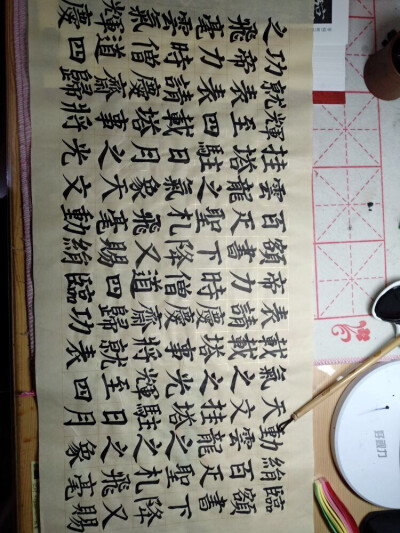 之功就輝挂雲百額帝表載氣天動綃臨
飛帝表至塔龍疋書力請載之文雲百額
毫力表四駐之聖下時慶塔之挂龍疋書
雲時請載日氣札降僧慶事光塔之聖下
氣僧慶塔月象飛又道齋將輝駐之札降
輝道齋事之天毫賜四歸就至日之飛又
慶四歸將光文動綃臨功表四月象毫賜